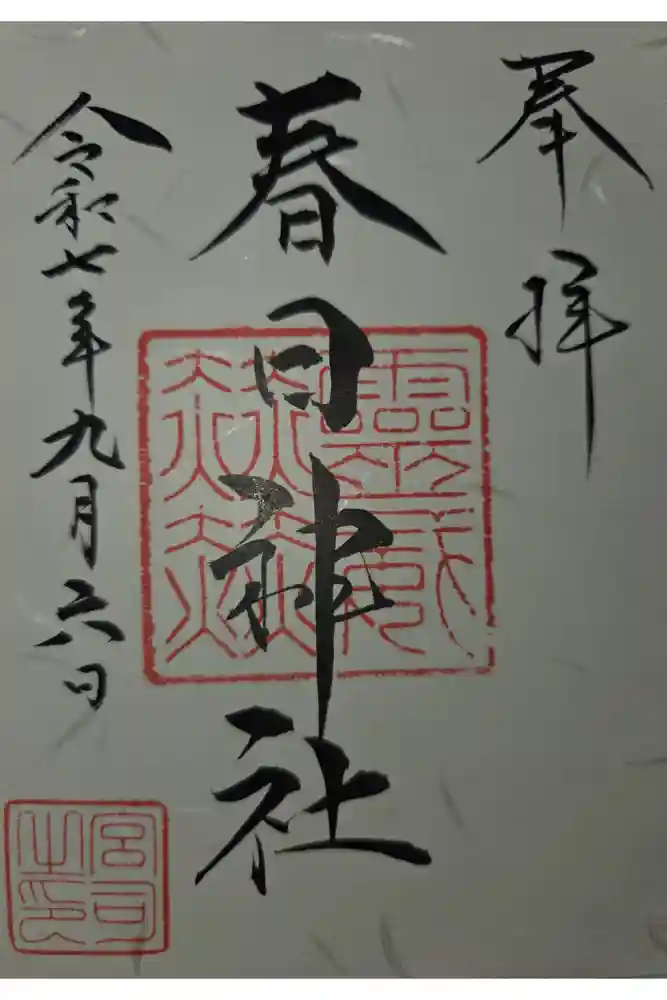 奉拝
春日神社
令和七年九月六日
靈威
赫赫
宮司
之印